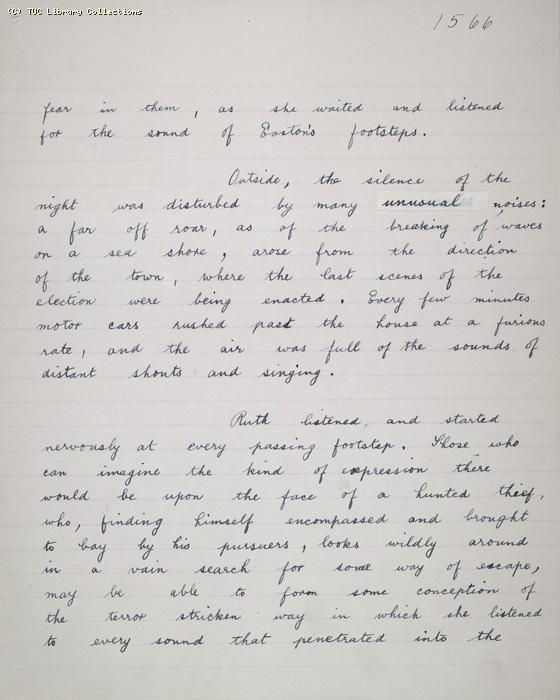 (C) TUC Library Collections
1566
fear in them, as she waited and listened
for the sound of Easton's footsteps.
Outside, the silence of the
night was disturbed by many unusual noises:
a far off roar, as of the breaking of waves
on a sea shore, arose from the direction
of the town, where the last scenes of the
election were being enacted. Every few minutes
motor cars rushed past the house at a furious
rate, and the air was full of the sounds of
distant shouts and singing.
Ruth listened, and started
nervously at every passing footstep. Those who
can imagine the kind of expression there
would be upon the face of a hunted thief,
who, finding himself encompassed and brought
to bay by his pursuers, looks wildly around
in a vain search for some way of escape,
may be able to form some conception of
the terror stricken way in which she listened
to every sound that penetrated into the